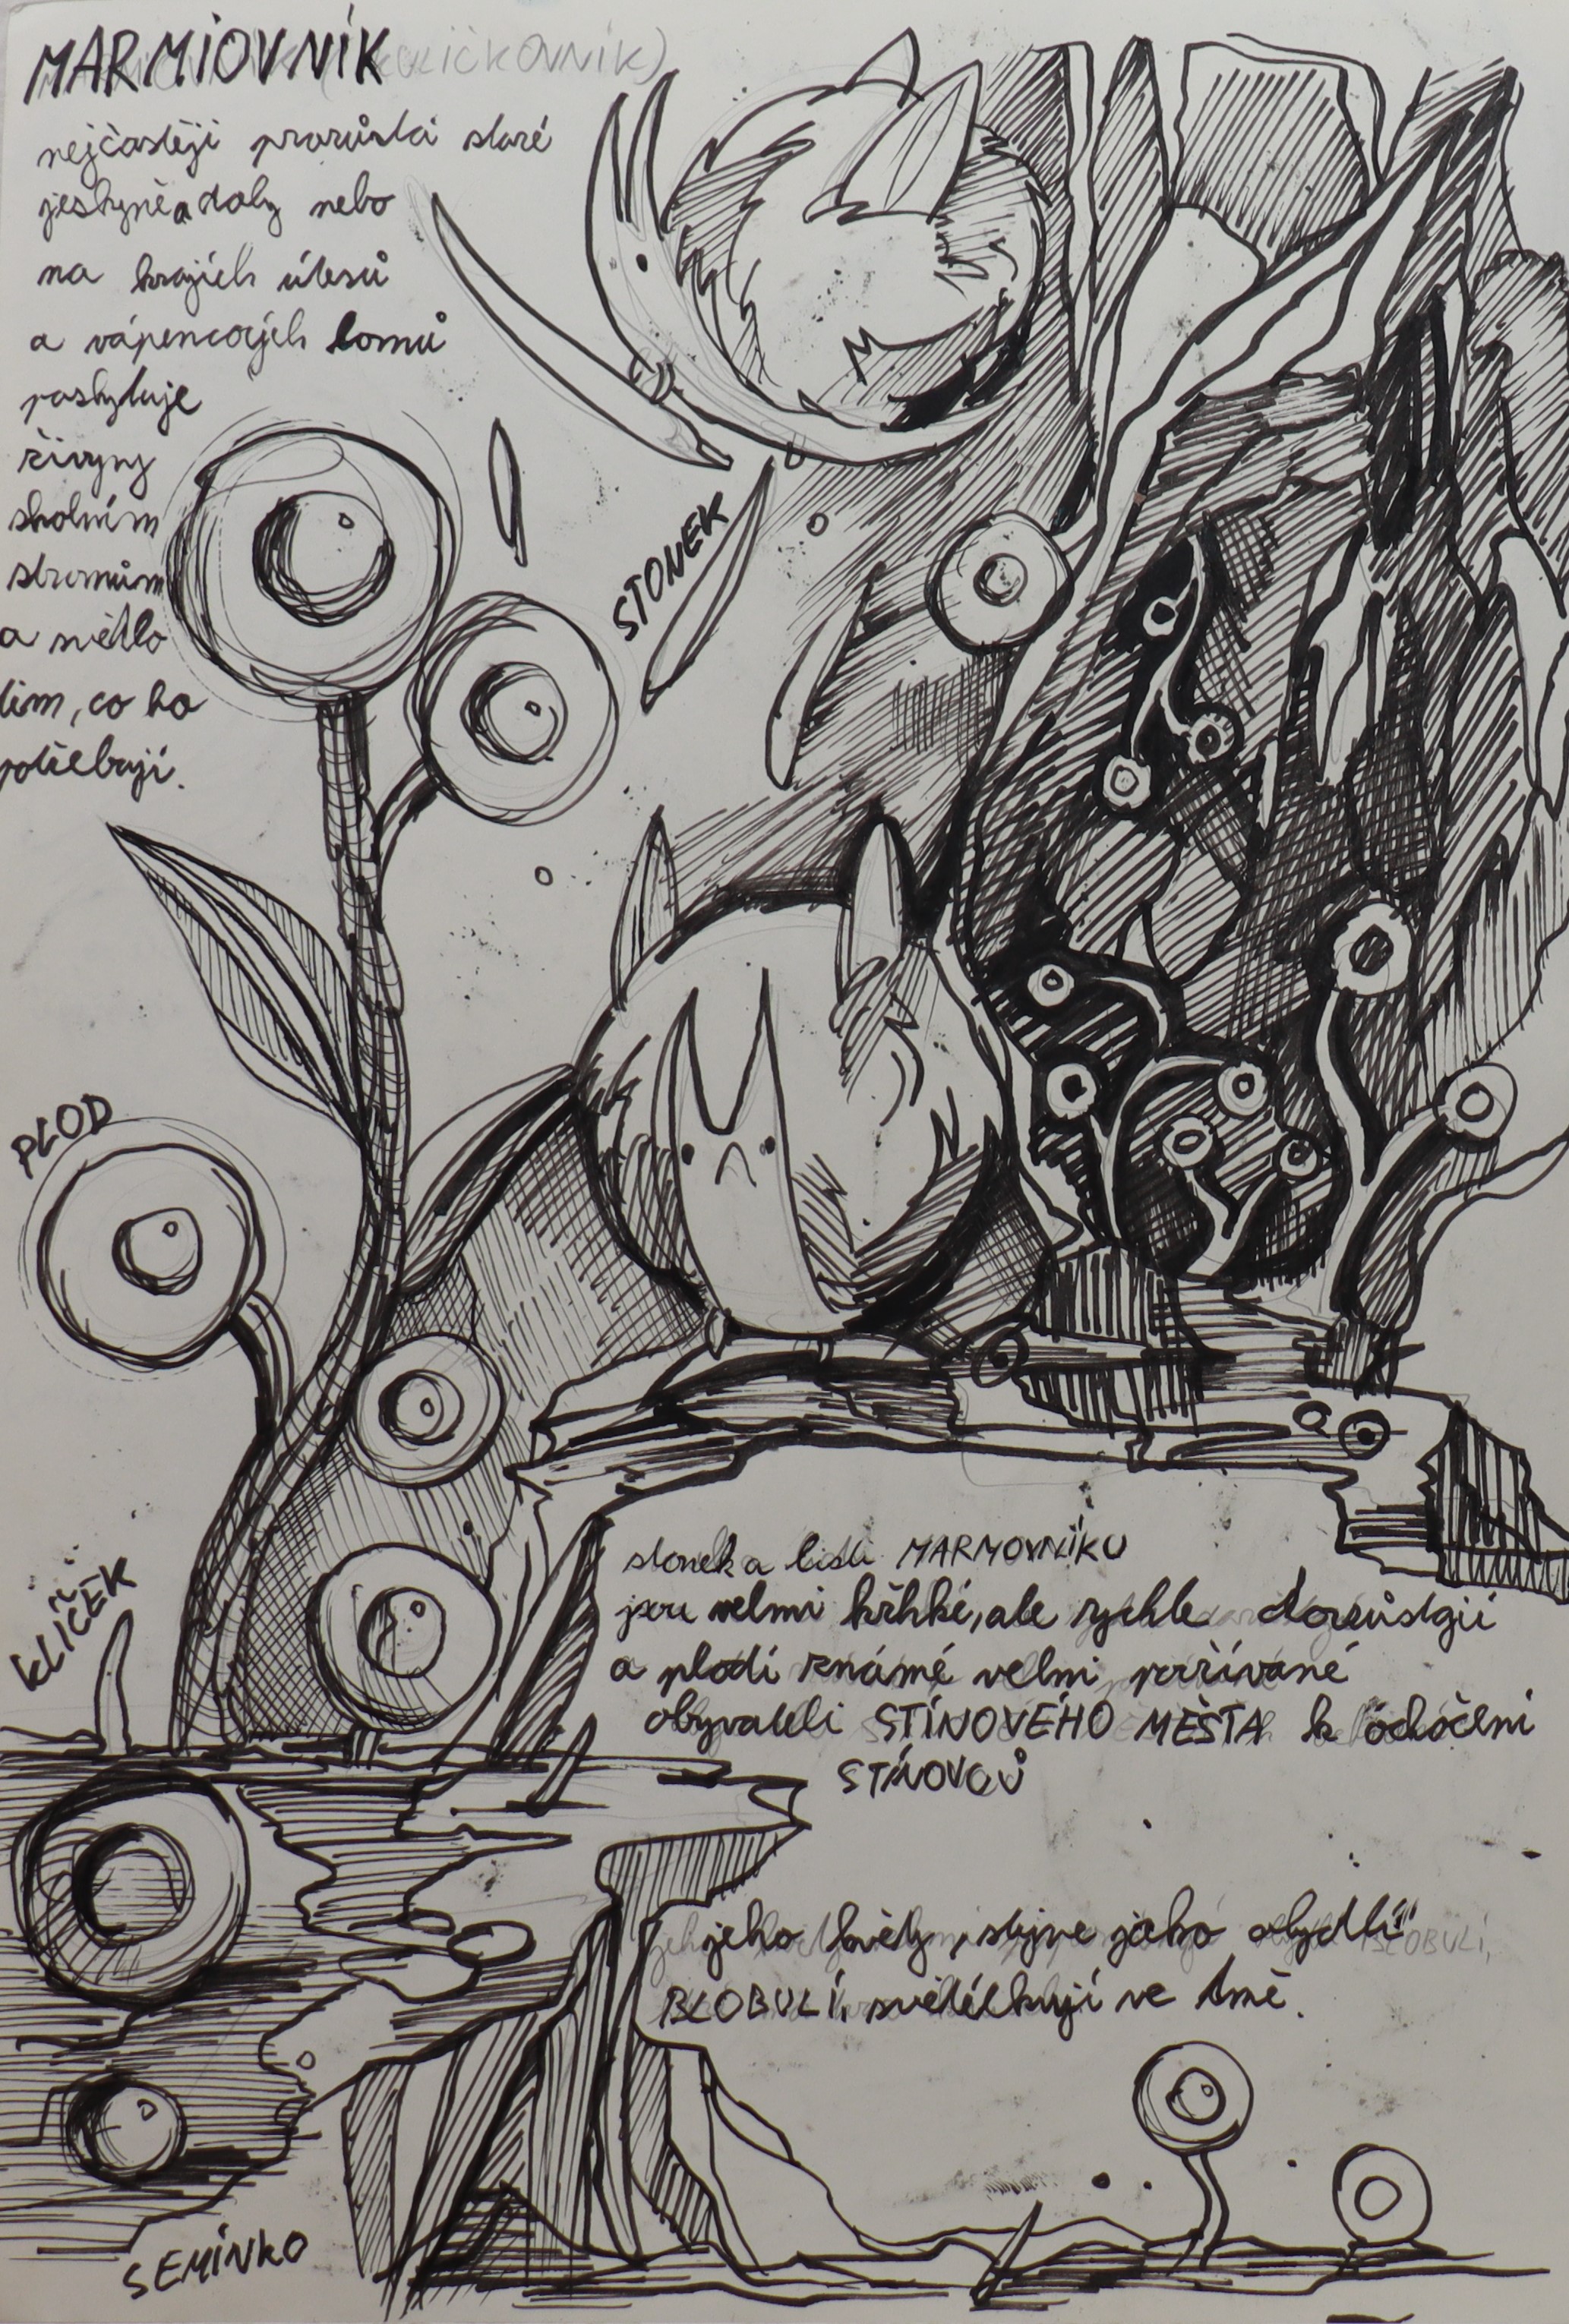 MARMIOVNÍK
nejčastěji prorůstá staré
jeskyně a doly nebo
na krajích útesů
a vápencových lomů
poskytuje
živiny
skalním
stromům
a světlo
těm, co ho
potřebují.
STONEK
PLOD
KLÍČEK
SEMÍNKO
stonek a listi MARMOVNÍKU
jsou velmi křhké, ale rychle dorůstají
a plodí známé velmi
obyvateli STÍNOVÉHO MĚSTA k ochočení
STÍNOVOŮ
jeho květy, stejně jako obydlí
BLOBULÍ, světélkují ve tmě.